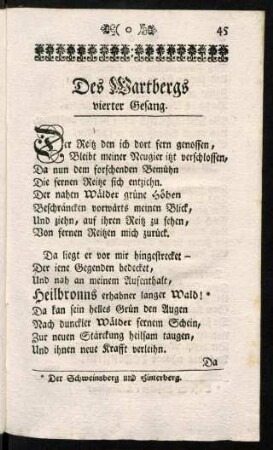 o 45
Des Wartbergs
vierter Gesang.
Der Reitz den ich dort fern genossen,
Bleibt meiner Neugier itzt verschlossen,
Da nun dem forschenden Bemühn
Die fernen Reitze sich entziehn.
Der nahen Wälder grüne Höhen
Beschräncken vorwärts meinen Blick,
Und ziehn, auf ihren Reitz zu sehen,
Von fernen Reitzen mich zurück.
Da liegt er vor mir hingestrecket –
Der iene Gegenden bedecket,
Und nah an meinem Aufenthalt,
Heilbronns erhabner langer Wald! *
Da kan sein helles Grün den Augen
Nach dunckler Wälder fernem Schein,
Zur neuen Stärckung heilsam taugen,
Und ihnen neue Krafft verleihn.
Da
* Der Schweinsberg und Hinterberg.